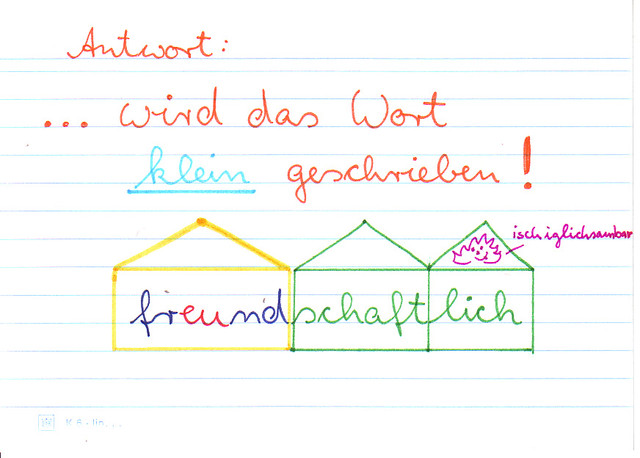 Antwort:
... wird das Wort
klein geschrieben!
ischiglichsambar
freundschaftlich